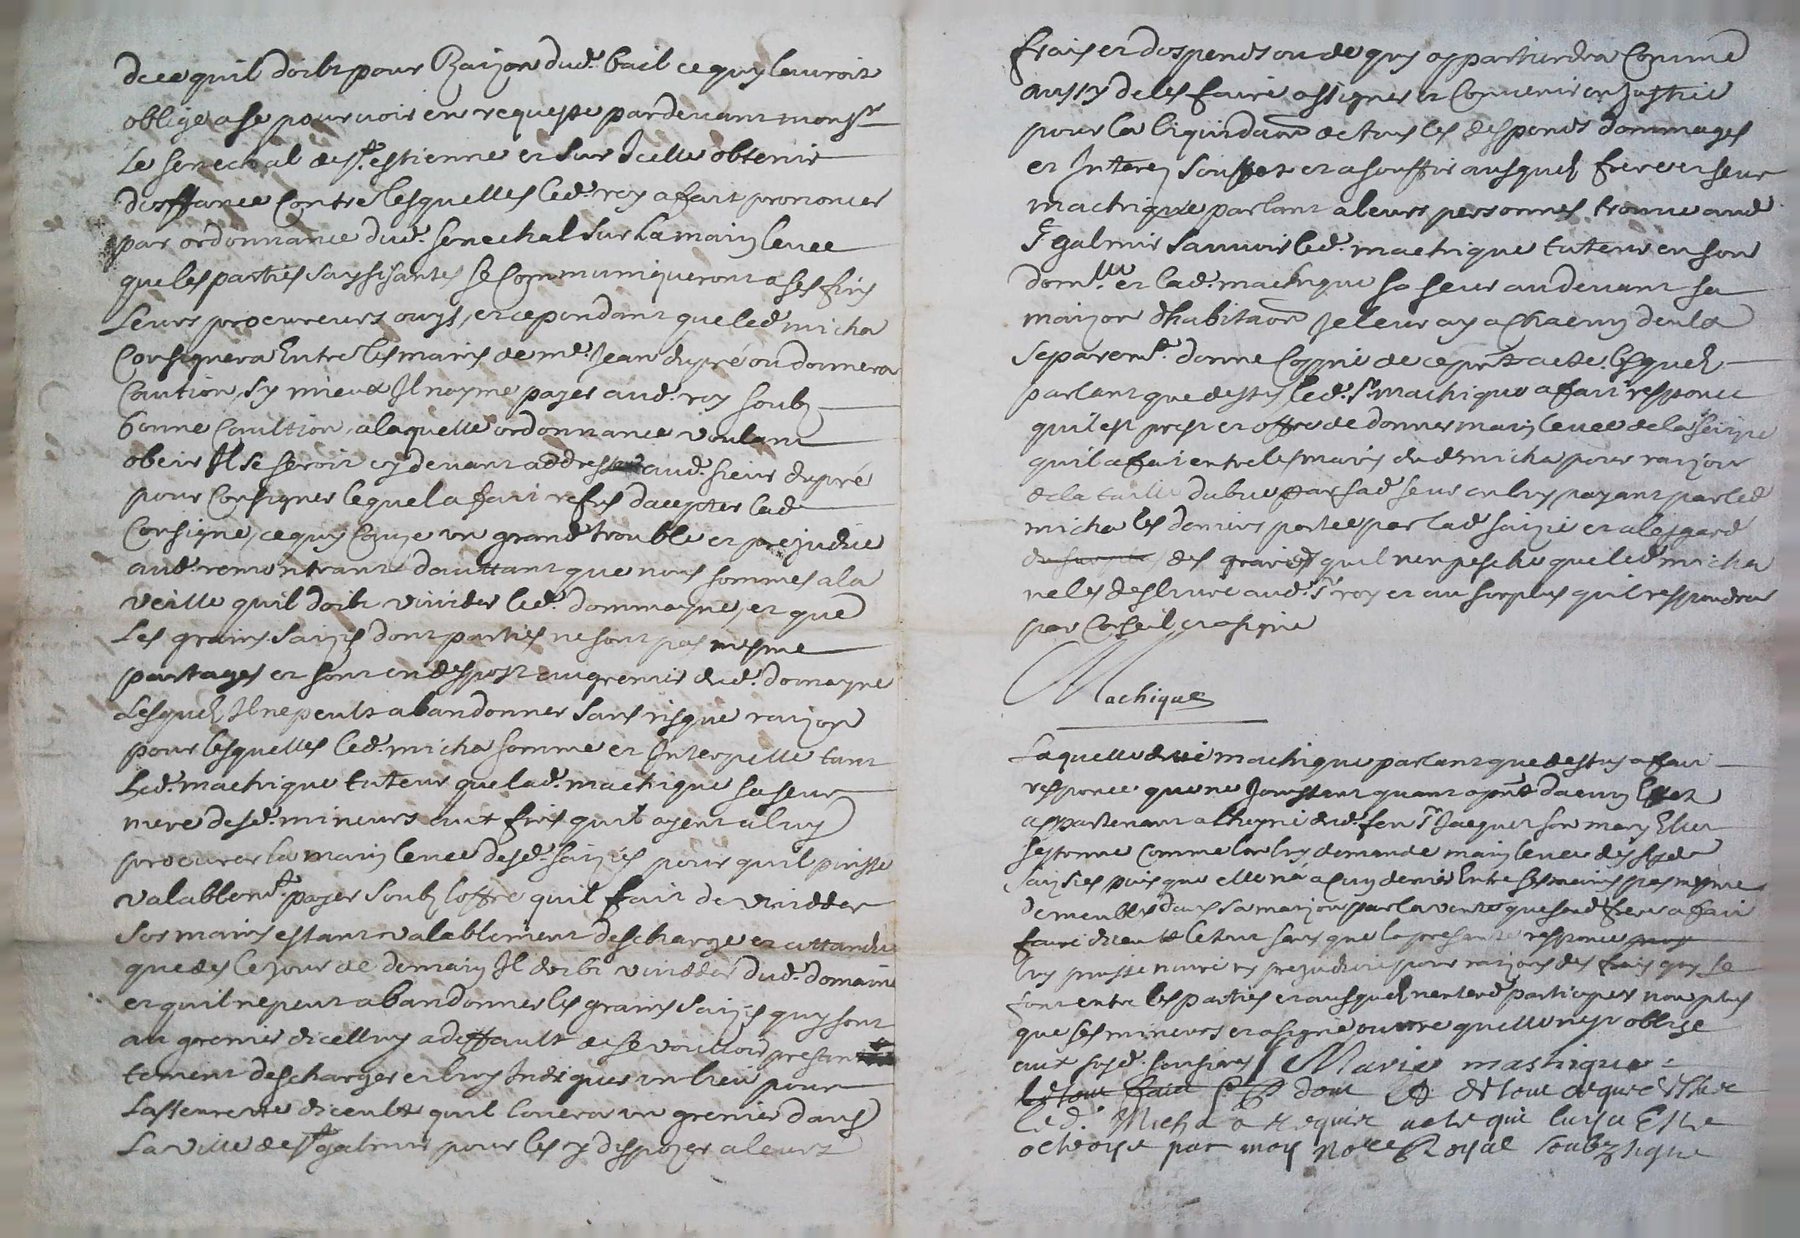 de ce quil doibt pour Raizon dud. bail ce quy lauroit
obligé a se pourvoir en requeste pardevant mons.r
Le senechal de s.t estienne et sur Icelle obtenir
deffance Contre lesquelles led. roy a fait prononcer
par ordonnance dud. senechal sur La main levee
que les parties saysisantes se Communiqueront a ses fins
Leurs procureurs ouys, et cependant que led. micha
Consignera Entre les mains de me. Jean dupré ou donnera
Caution, sy mieux Il nayme payer aud. roy soubz
bonne Caultion, a laquelle ordonnance voulant
obeir Il se seroit cy devant addressé aud. sieur dupré
pour Consigner lequel a fait refus dacepter lad.
Consigne, ce quy Cauze un grand trouble et prejudice
aud. remontrant dauttant que nous sommes a la
veille quil doibt vuider led. dommayne, et que
Les grains saizis dont parties ne sont pas mesme
partages et sont en despost au grenier dud. domayne
Lesquelz Il ne peult abandonner sans risque raizon
pour lesquelles led. micha somme et Interpelle tant
Led. machique tutteur que lad. machique sa seur
mere desd. mineurs aux fins quil ayent a luy
procurer la main levee desd. saizies pour quil puisse
valablem.t payer soubz loffre quil fait de vuidder
ses mains estant valablement descharge et attandu
que des le jour de demain Il doibt vuidder dud. domaine
et quil ne peut abandonner les grains saizis quy sont
au grenier dicelluy a deffault de se voulloir presan
tement descharger et luy Indiquer un lieu pour
Lasseurette diceulx quil louera un grenier dans
La ville de s.t galmier pour les y depozer a leurs
frais et despends ou de quy appartiendra Comme
aussy de les faire assigner et Convenir en Justice
pour la liquida.on de tous les despends dommages
et Interez soufferz et a souffrir ausquelz frere et seur
machique parlant a leurs personnes trouve aud.
S.t galmier sauvoir led. machique tutteur en son
dom.lle et lad. machique sa seur au devant sa
maizon dhabita.on Je leur ay a chacun deulx
separem.t donne Coppie de ce pn.t acte lesquelz
parlant que dessus led. s.r machique a fait responce
quil est prest et offre de donner main levee de la saizie
quil a fait entre les mains dud. micha pour raizon
de la taille dube par sad. seur en luy payant par led.
micha les deniers portee par lad. saizie et a lesgard
des grains quil nempesche que led. micha
ne les deslivre aud. s.r roy et au surplus quil respondra
par Conseil et a signé
Machique
Laquelle machique parlant que dessus a fait
responce que ne Jouissant quant a pn.t daucun Effet
appartenant a lheyrie dud. feu s.r Jacquet son mary Elle
sestonne Comme lon luy demande main levee desd.
saizies puis que elle na aucun denier Entre ses mains pas mesme
de meubles dans sa maizon par la vente que sond. frere a fait
faire diceulx le tout sans que la presante responce
luy puisse nuire ny prejudicier pour raizon des frais quy se
font entre les parties et ausquelz nentend participer non plus
que ses mineurs et a signé outre quelle nest oblige
aux susd. Marie mashique
dont et de tout de quoy
Led. Micha a requis acte qui luy a Este
octroyé par moy No.re Royal soubzsigne